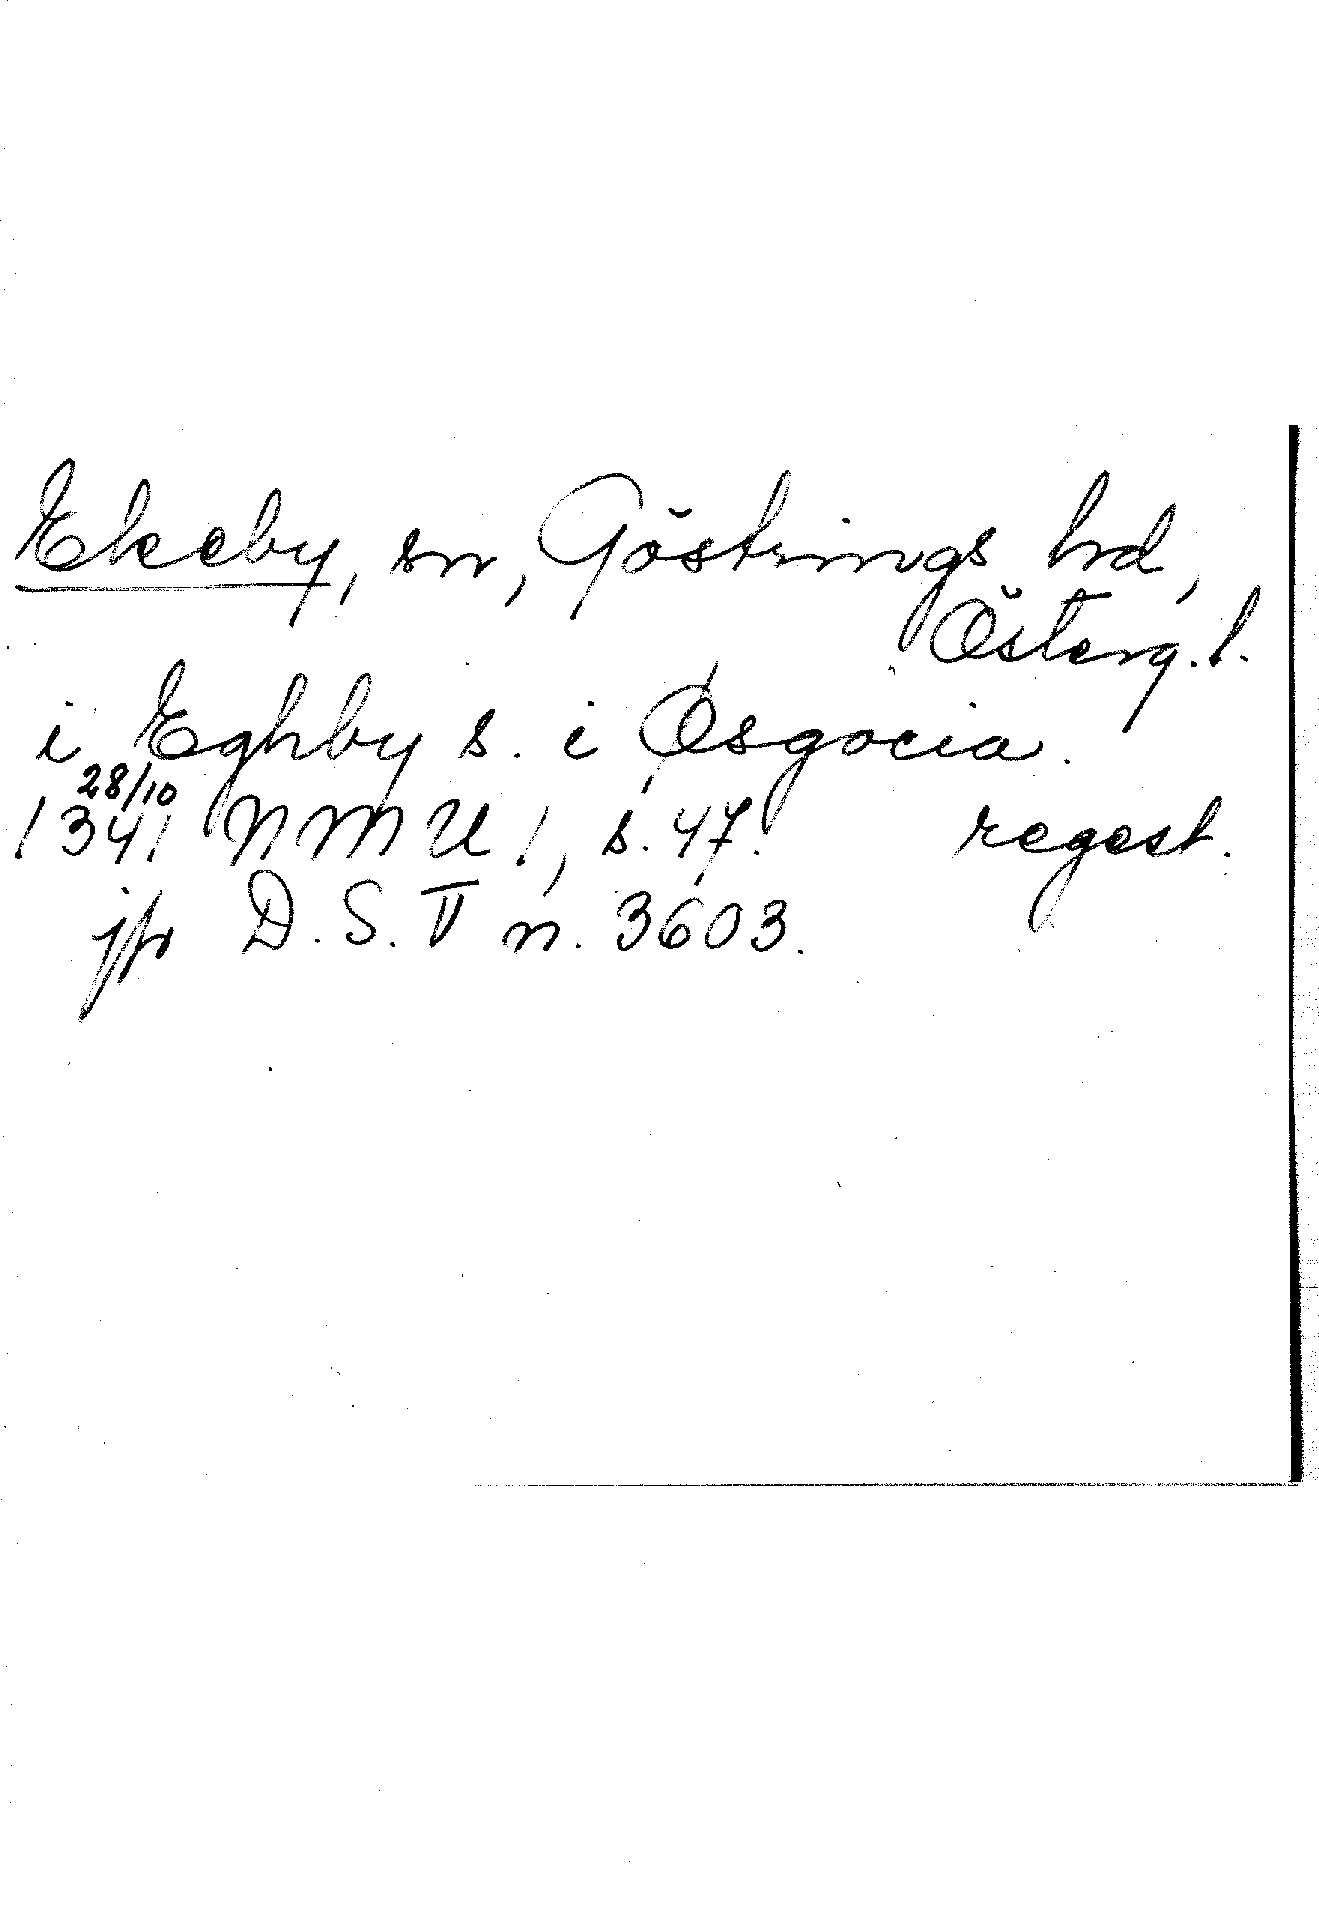 Ekeby, sn, Göstrings hd,
Österg.l.
i Eghby s. i Øsgocia.
28/10
1341 NMU 1, s. 47. regest.
jfr D.S. V n. 3603.